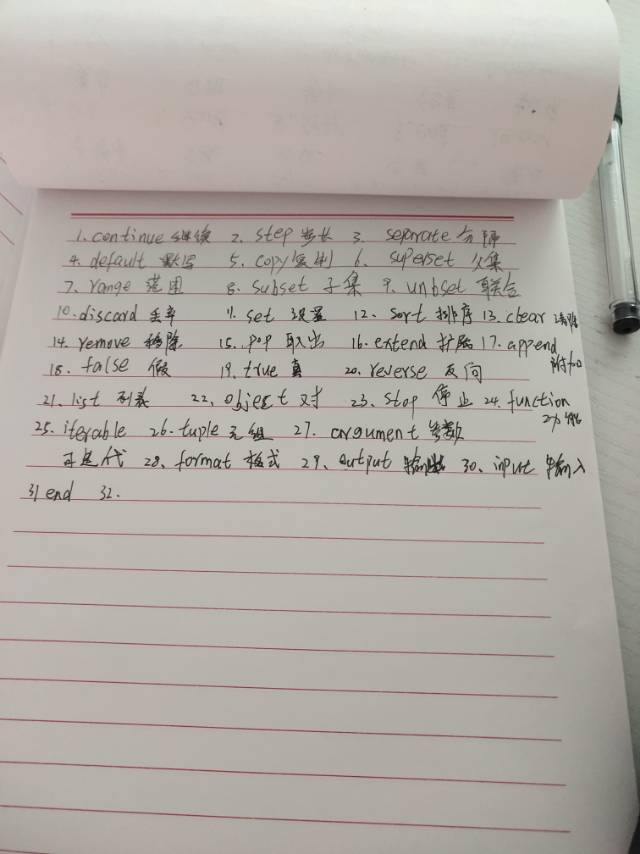 1. continue 继续 2. step 步长 3. separate 分隔
4. default 默认 5. copy 复制 6. superset 父集
7. range 范围 8. subset 子集 9. unbset 联合
10. discard 丢弃 11. set 设置 12. sort 排序 13. cbear 清除
14. remove 移除 15. pop 取出 16. extend 扩展 17. append 附加
18. false 假 19. true 真 20. reverse 反向
21. list 列表 22. object 对 23. stop 停止 24. function 功能
25. iterable 26. tuple 元组 27. argument 参数
可迭代 28. format 格式 29. output 输出 30. input 输入
31 end 32.